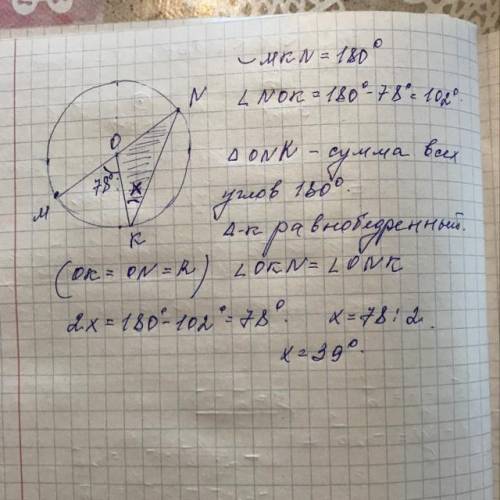 ◡MKN = 180°
∠NOK = 180° - 78° = 102°.
N
O
78°
x
M
K
△ONK – сумма всех
углов 180°.
△-к равнобедренный.
(OK = ON = R) ∠OKN = ∠ONK
2x = 180° - 102° = 78°. x = 78 : 2.
x = 39°.